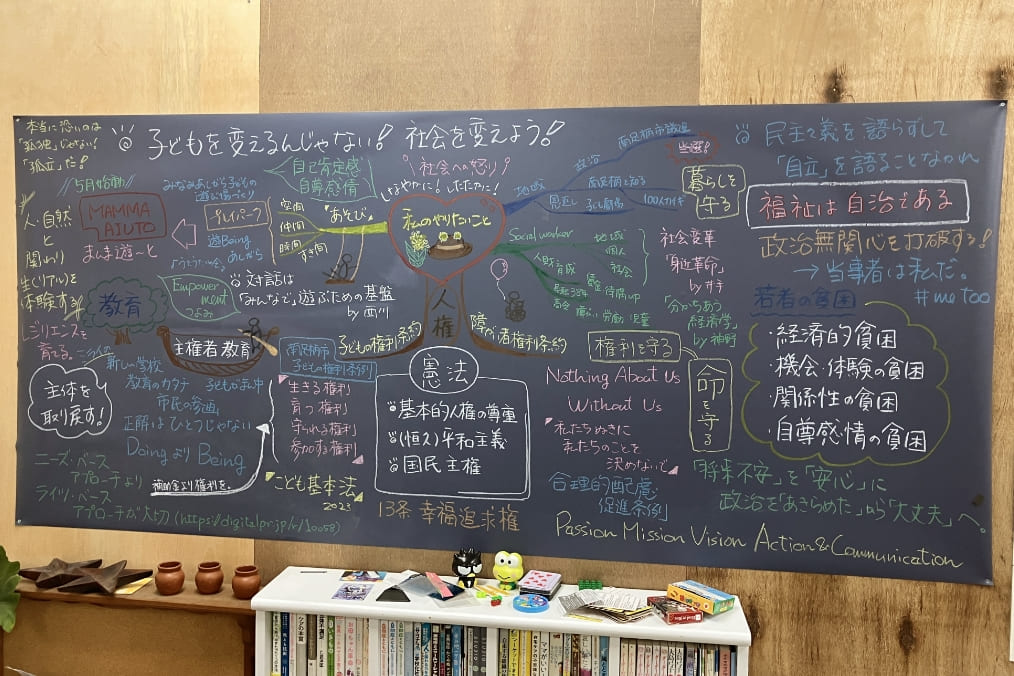 本当に恐いのは
「孤独」じゃない!
「孤立」だ!
子どもを変えるんじゃない! 社会を変えよう!
//5月始動//
MAMMA
AIUTO
まんま遊ーと
みなみあしがら子どもの
遊び場づくり
プレイパーク
遊Being
あしがら
自己肯定感
自尊感情
空間
仲間
時間
すき間
「あそび」
社会への怒り
しなやかに!したたかに!
私のやりたいこと
人権
地域
政治
南足柄市議選
当選!
見返し
南足柄を知る
子ども食堂
100人カイギ
暮らしを
守る
民主主義を語らずして
「自立」を語ることなかれ
福祉は自治である
政治無関心を打破する!
→当事者は私だ。
#me too
人・自然
と
関わり
生(リアル)を
体験する
レジリエンスを
育てる。
教育
Empower
ment
つよみ
文対話は
「みんなで」遊ぶための基盤
by 西川
主権者教育
Social worker
地域
個人
社会
人財育成
児童
社会変革
「身近革命」
by サチ
「分かちあう
経済学」
by 神野
若者の貧困
・経済的貧困
・機会・体験の貧困
・関係性の貧困
・自尊感情の貧困
主体を
取り戻す!
新しい学校
教育のカタチ 子どもがまん中
市民の参画
正解はひとつじゃない
Doing より Being
ニーズ・ベース
アプローチより
ライツ・ベース
アプローチが大切 (https://digitalpr.jp/r/10058)
補助金より権利を。
南足柄市
子どもの権利条例
『生きる権利
育つ権利
守られる権利
参加する権利』
こども基本法
2023
子どもの権利条約
障がい者権利条約
憲法
基本的人権の尊重
(恒久)平和主義
国民主権
13条 幸福追求権
権利を守る
命を守る
Nothing About Us
Without Us
『私たちぬきに
私たちのことを
決めないで』
合理的配慮
促進条例
「将来不安」を「安心」に
政治を「あきらめた」から「大丈夫」へ。
Passion Mission Vision Action & Communication